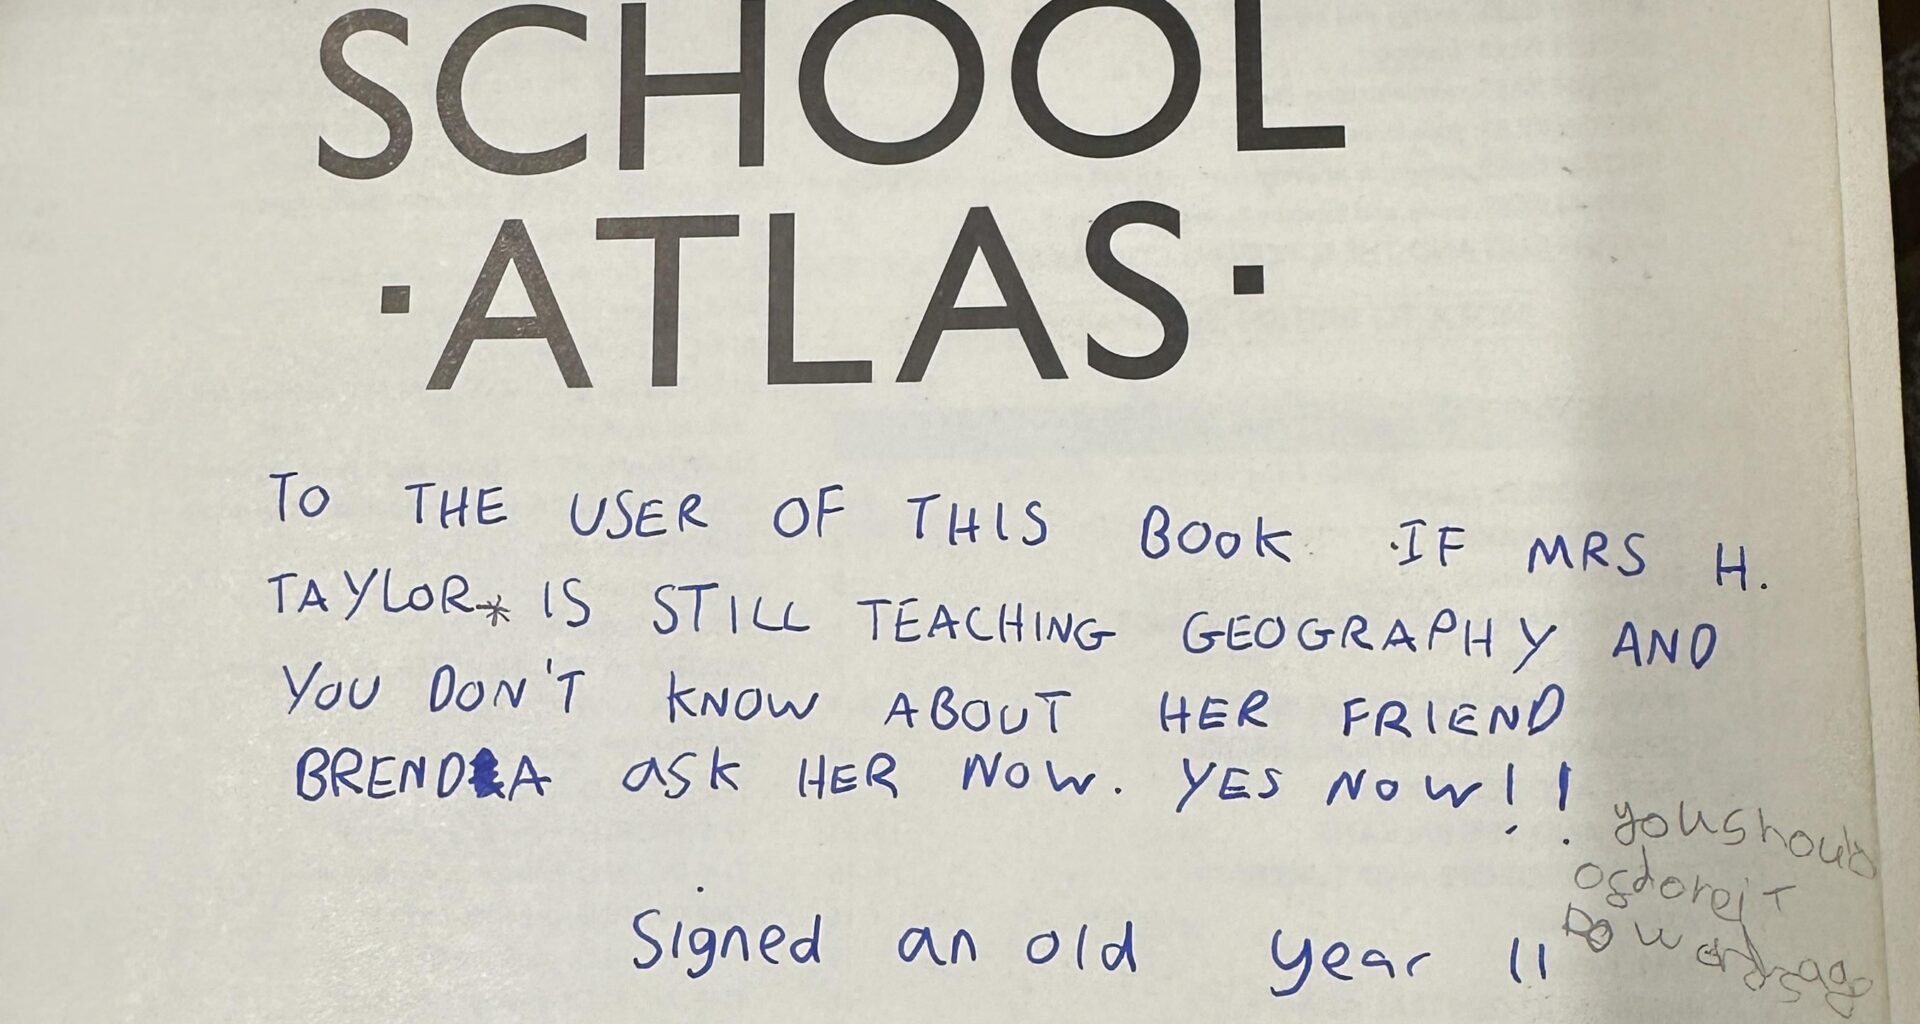 SCHOOL
·ATLAS·
TO THE USER OF THIS BOOK IF MRS H.
TAYLOR* IS STILL TEACHING GEOGRAPHY AND
YOU DON'T KNOW ABOUT HER FRIEND
BRENDA ASK HER NOW. YES NOW!!
Signed an old year 11
you should